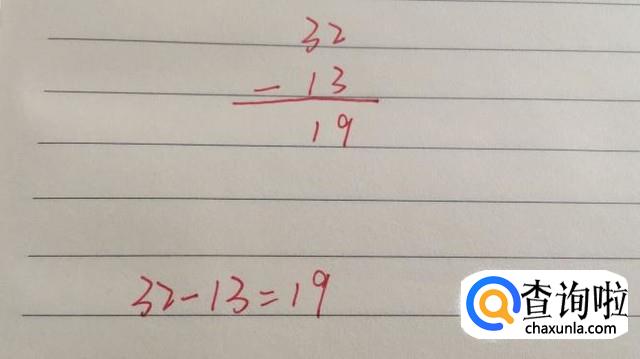 32
- 13
19
32-13=19
查询啦
chaxunla.com